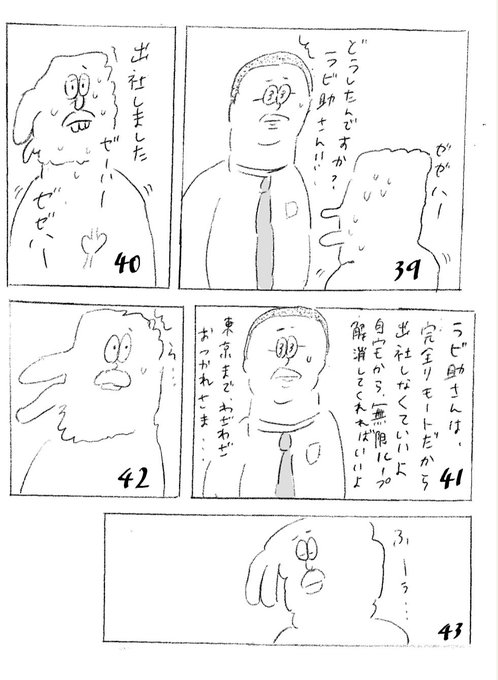 どうしたんですか?
ラビ助さん!!
ゼゼハー
39
出社しました
ゼーハー
ゼゼハー
40
ラビ助さんは、
完全リモートだから
出社しなくていいよ
自宅から、無限ループ
解消してくれればいいよ
東京まで、わざわざ
おつかれさま...
41
え...
42
ふーぅ...
43